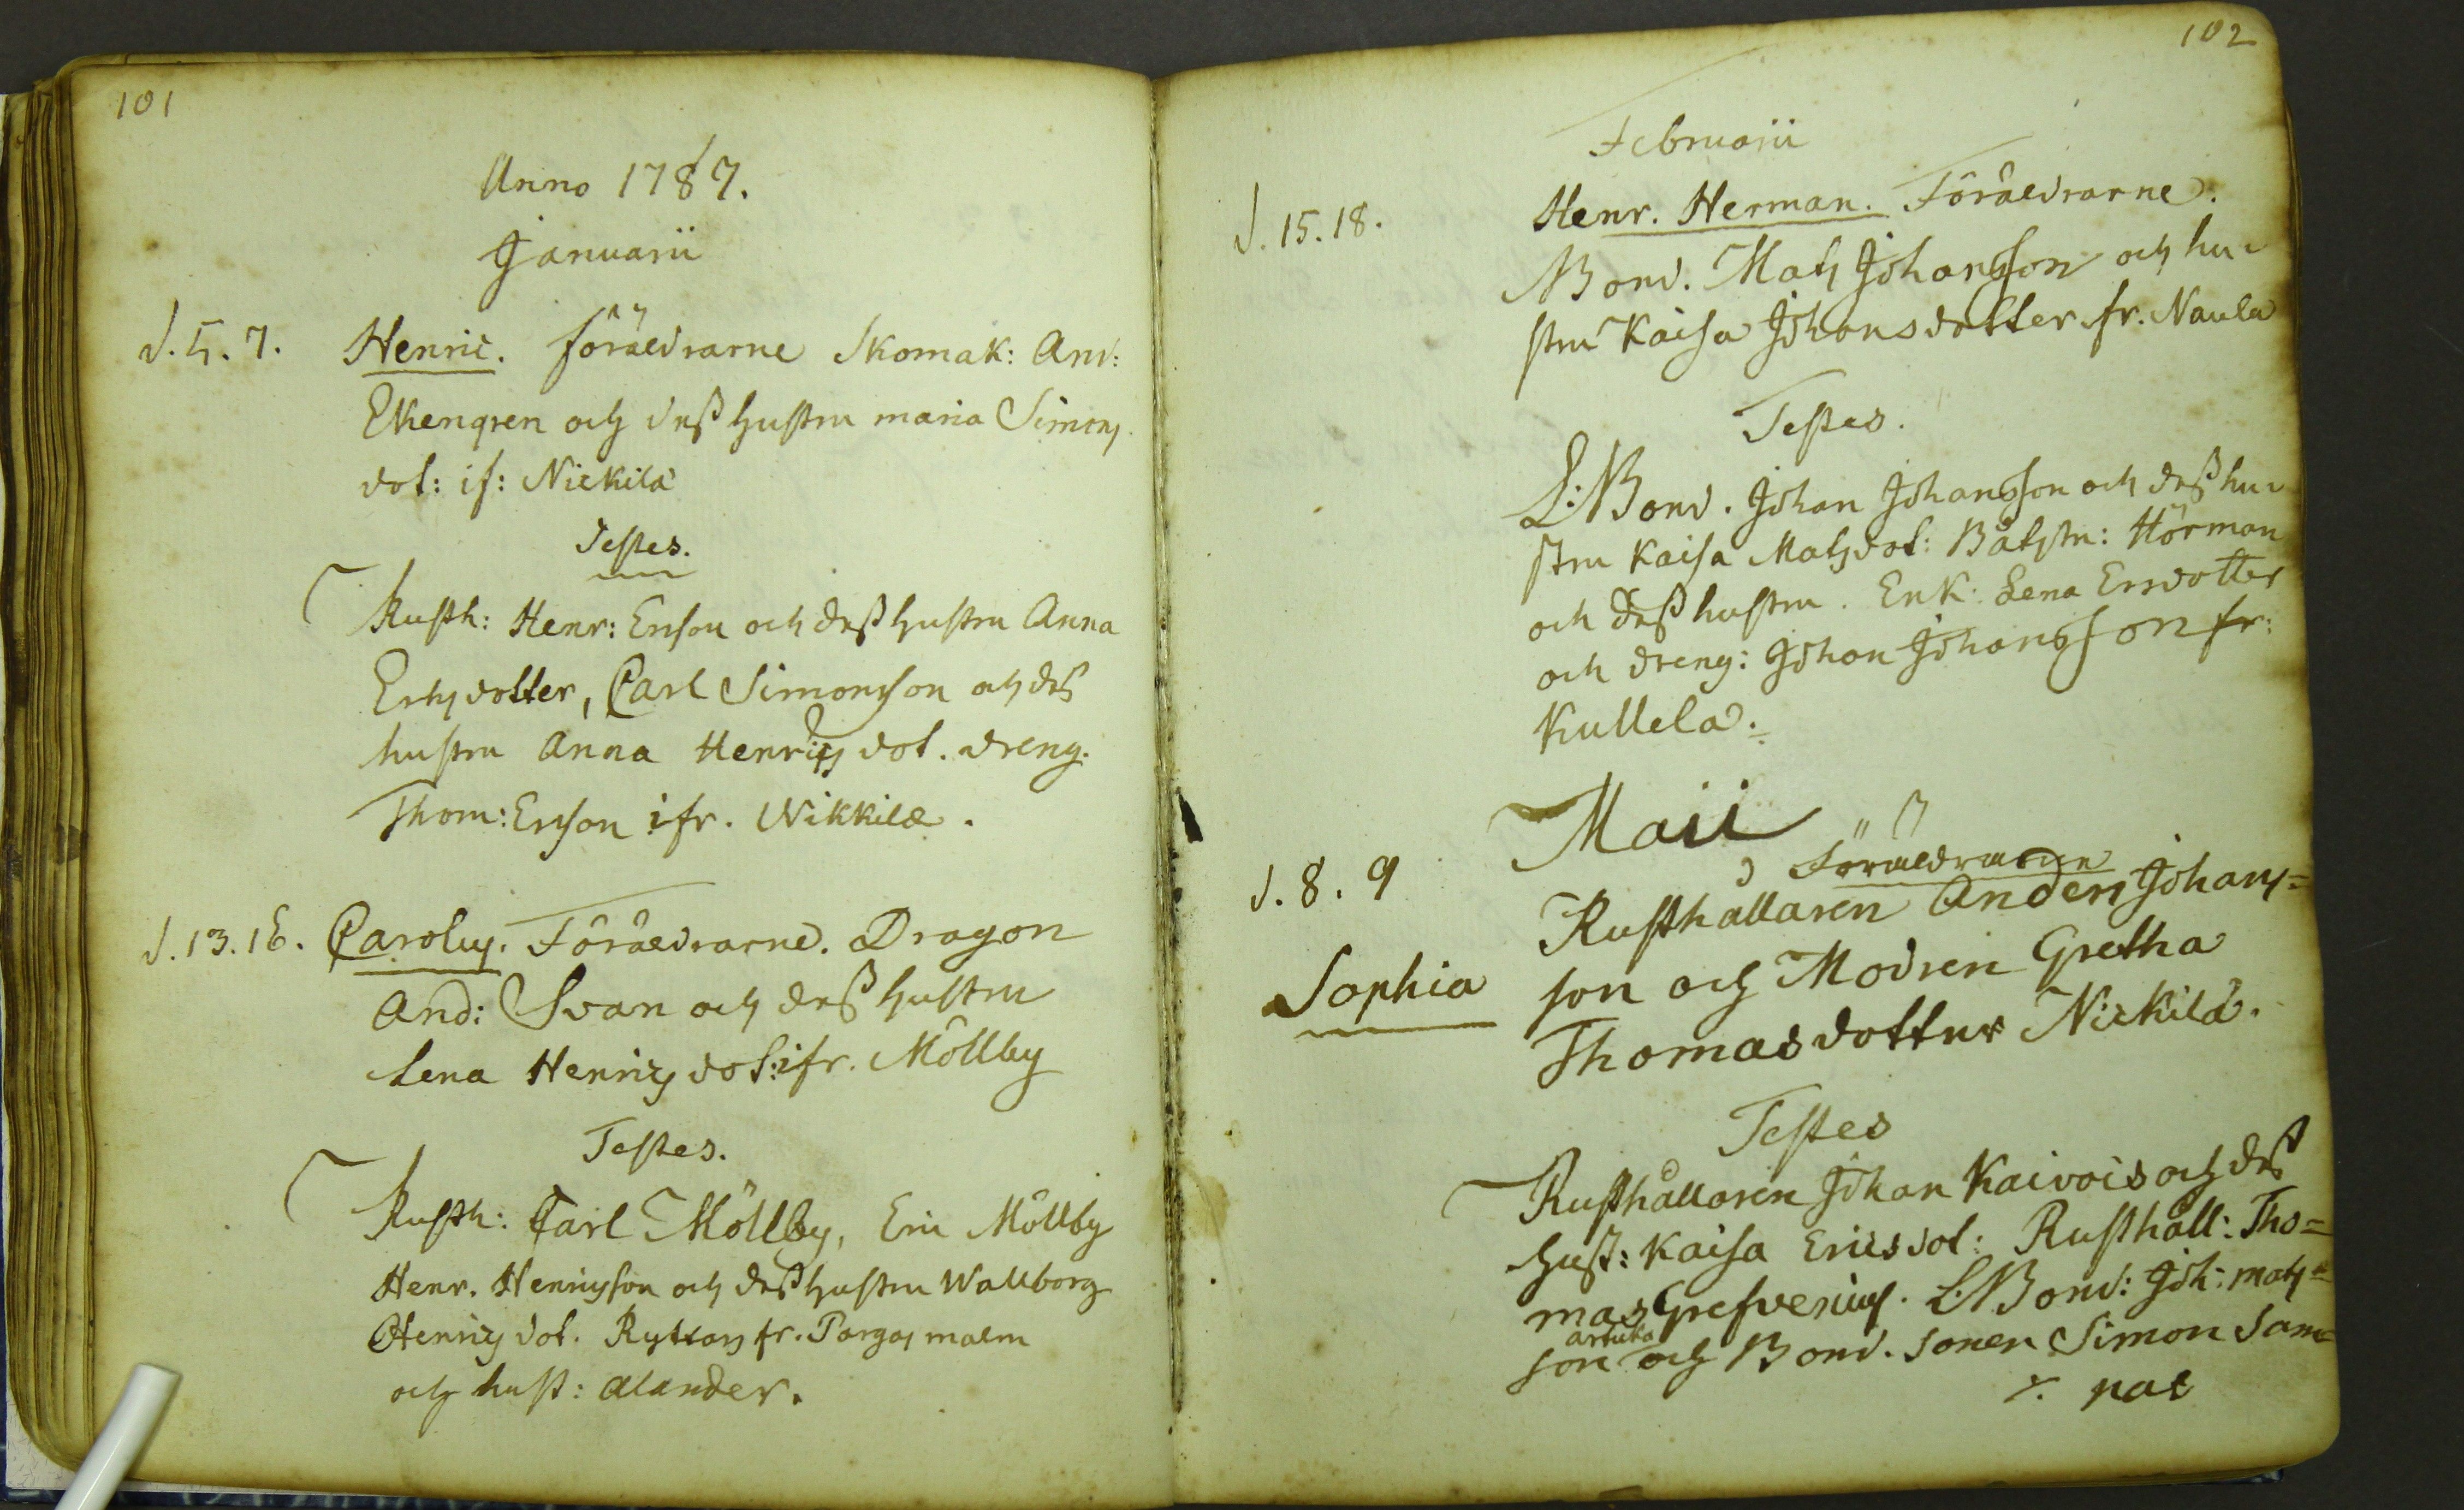 101
Anno 1787.
Januarii
d. 5. 7. Henric. föräldrarne Skomak: And:
Ekengren och dess hustru maria Simons
dot: if: Nickilä
Testes.
Rusth: Henr: Ersson och dess hustru Anna
Ersdotter, Carl Simonsson och dess
hustru Anna Henricsdot. dreng.
Thom: Ersson ifr. Nikkilä.
d. 13. 16. Carolus. Föräldrarne. Dragon
And: Svan och dess hustru
Lena Henricsdot: ifr. Möllby
Testes.
Rusth: Carl Möllby, Eric Möllby
Henr. Henricsson och dess hustru Wallborg
Henricsdot. fr. Pargas malm
och hust: Alander.
102
Februarii
d. 15. 18. Henr. Herman. Föräldrarne.
Bond. Mats Johansson och hu-
stru Kaisa Johansdotter fr. Naula
Testes.
L: Bond. Johan Johansson och dess hu-
stru Kaisa Matsdot: Båtsm: Hörman
och dess hustru. Enk: Lena Ersdotter
och dreng: Johan Johansson fr:
Kullela.
Maii
Föräldrarne
d. 8. 9 Rusthållaren Anders Johans=
Sophia son och Modren Gretha
Thomasdotter Nickilä.
Testes
Rusthållaren Johan Kaivois och dess
Hust: Kaisa Ericsdot: Rusthåll: Tho=
mas Grefvenius. L: Bond: Joh: mats=
son och Bond. sonen Simon Sam=